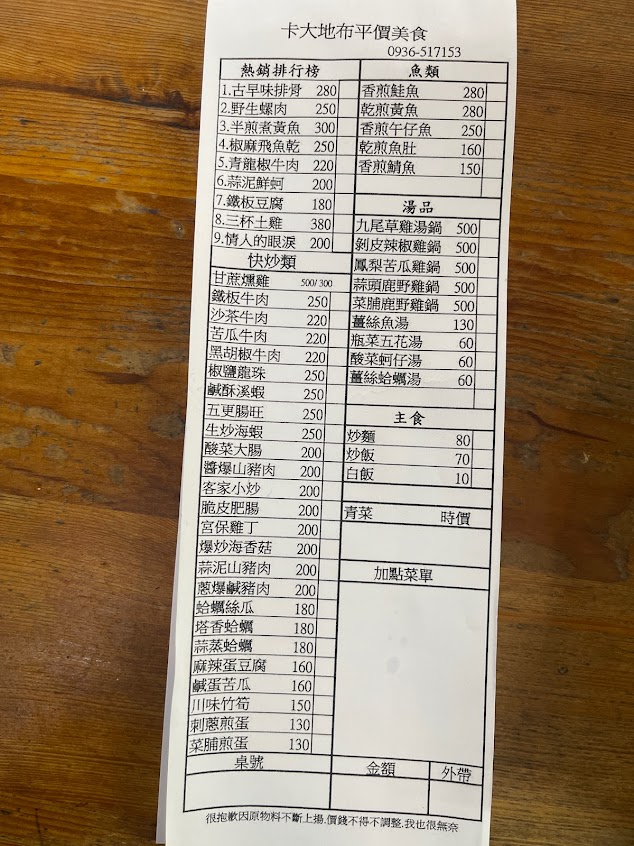 卡大地布平價美食
0936-517153
熱銷排行榜
1.古早味排骨 280
2.野生螺肉 250
3.半煎煮黃魚 300
4.椒麻飛魚乾 250
5.青龍椒牛肉 220
6.蒜泥鮮蚵 200
7.鐵板豆腐 180
8.三杯土雞 380
9.情人的眼淚 200
快炒類
甘蔗燻雞 500/300
鐵板牛肉 250
沙茶牛肉 220
苦瓜牛肉 220
黑胡椒牛肉 220
椒鹽龍珠 250
鹹酥溪蝦 250
五更腸旺 250
生炒海蝦 250
酸菜大腸 200
醬爆山豬肉 200
客家小炒 200
脆皮肥腸 200
宮保雞丁 200
爆炒海香菇 200
蒜泥山豬肉 200
蔥爆鹹豬肉 200
蛤蠣絲瓜 180
塔香蛤蠣 180
蒜蒸蛤蠣 180
麻辣蛋豆腐 160
鹹蛋苦瓜 160
川味竹筍 150
刺蔥煎蛋 130
菜脯煎蛋 130
魚類
香煎鮭魚 280
乾煎黃魚 280
香煎午仔魚 250
乾煎魚肚 160
香煎鯖魚 150
湯品
九尾草雞湯鍋 500
剝皮辣椒雞鍋 500
鳳梨苦瓜雞鍋 500
蒜頭鹿野雞鍋 500
菜脯鹿野雞鍋 500
薑絲魚湯 130
瓶菜五花湯 60
酸菜蚵仔湯 60
薑絲蛤蠣湯 60
主食
炒麵 80
炒飯 70
白飯 10
青菜 時價
加點菜單
桌號 金額 外帶
很抱歉因原物料不斷上揚.價錢不得不調整.我也很無奈